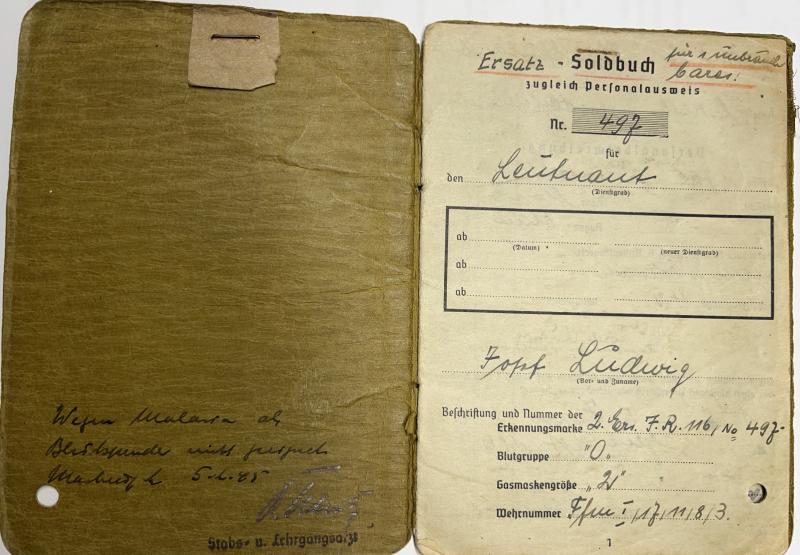 Wegen Malaria als
Blutspender nicht geeignet
5.2.45
Stabs- u. Lehrgangsarzt
Ersatz - Soldbuch
für
zugleich Personalausweis
Nr. 497
für
den Leutnant
(Dienstgrad)
ab
(Datum) (neuer Dienstgrad)
ab
ab
Josef Ludwig
(Vor- und Zuname)
Beschriftung und Nummer der
Erkennungsmarke 2. Ers. I.R. 116, No 497-
Blutgruppe "O"
Gasmaskengröße "2"
Wehrnummer Ffm I/17/11/8/3.
1